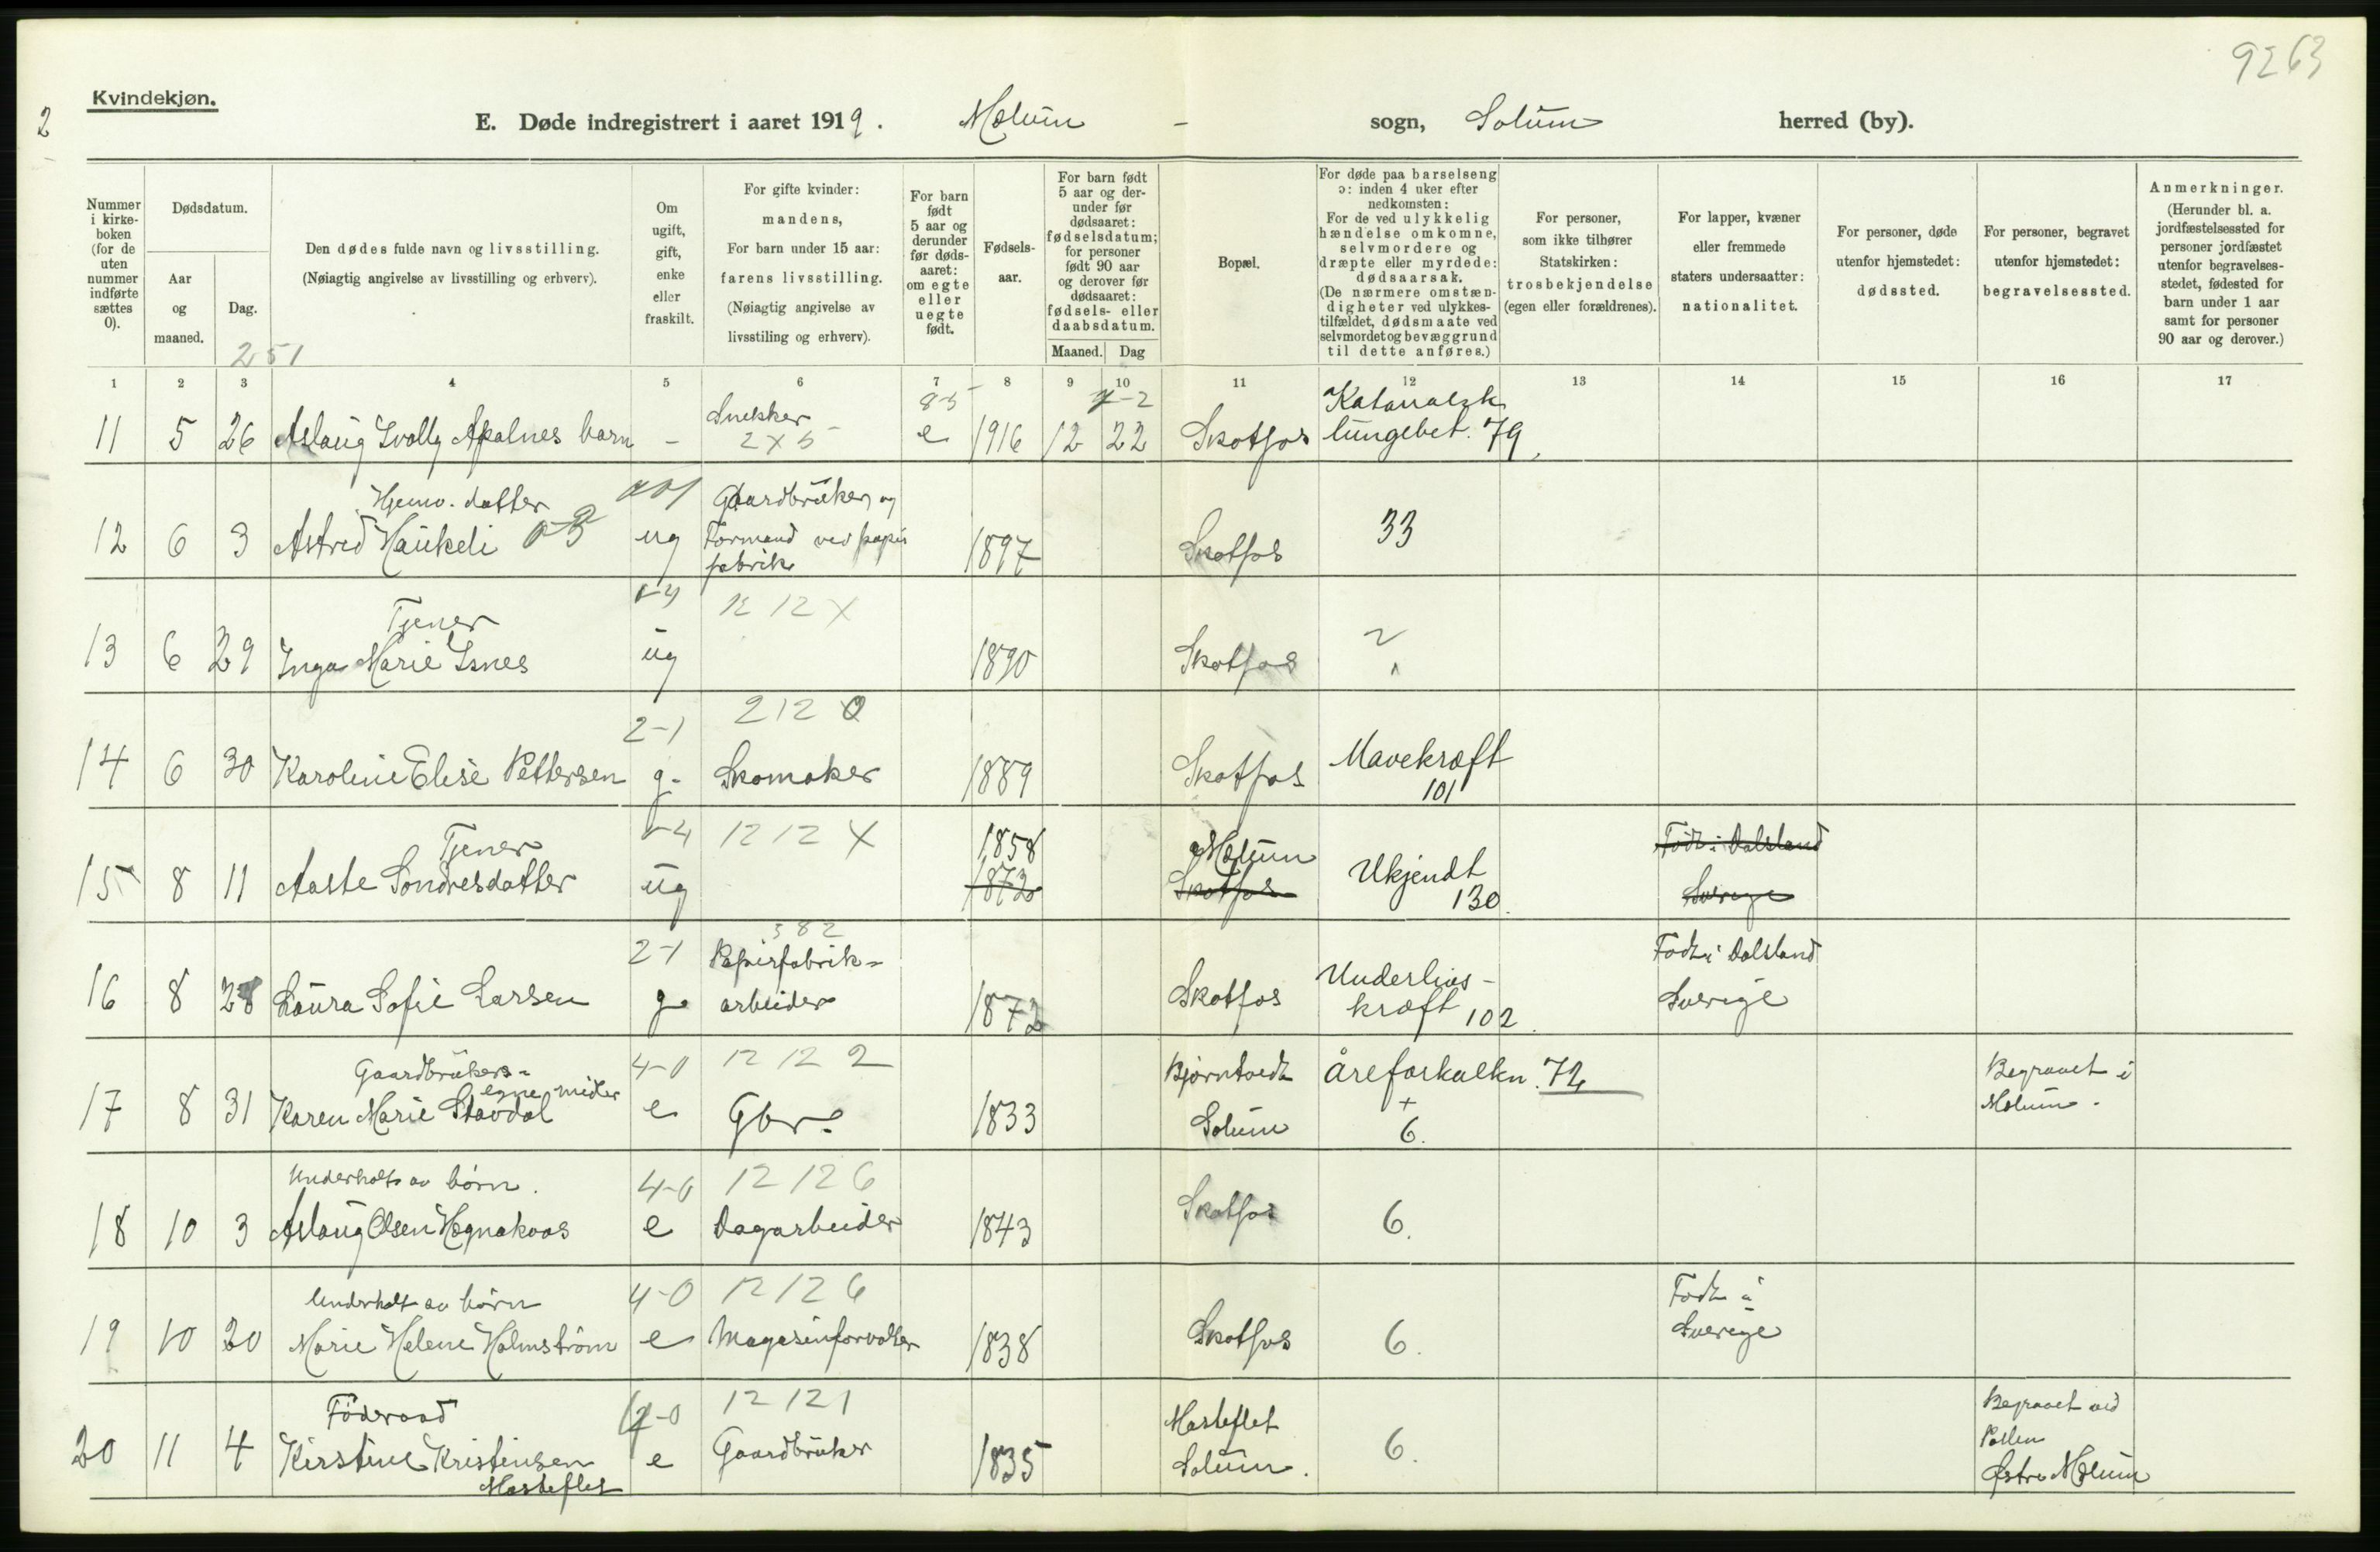 9263
2
Kvindekjøn.
E. Døde indregistrert i aaret 1919. Mælum - sogn, Solum herred (by).
Nummer i kirke-boken (for de uten nummer indførte sættes 0).
Dødsdatum.
Aar og maaned.
Dag.
Den dødes fulde navn og livsstilling.
(Nøiagtig angivelse av livsstilling og erhverv).
Om ugift, gift, enke eller fraskilt.
For gifte kvinder: mandens,
For barn under 15 aar: farens livsstilling.
(Nøiagtig angivelse av livsstiling og erhverv).
For barn født 5 aar og derunder før døds-aaret: om egte eller uegte født.
Fødsels-aar.
For barn født 5 aar og der-under før dødsaaret: fødselsdatum; for personer født 90 aar og derover før dødsaaret: fødsels- eller daabsdatum.
Maaned. Dag
Bopæl.
For døde paa barselseng ɔ: inden 4 uker efter nedkomsten:
For de ved ulykkelig hændelse omkomne, selvmordere og dræpte eller myrdede: dødsaarsak.
(De nærmere omstæn-digheter ved ulykkes-tilfældet, dødsmaate ved selvmordet og bevæggrund til dette anføres.)
For personer, som ikke tilhører Statskirken: trosbekjendelse (egen eller forældrenes).
For lapper, kvæner eller fremmede staters undersaatter: nationalitet.
For personer, døde utenfor hjemstedet: dødssted.
For personer, begravet utenfor hjemstedet: begravelsessted.
Anmerkninger.
(Herunder bl. a. jordfæstelsessted for personer jordfæstet utenfor begravelses-stedet, fødested for barn under 1 aar samt for personer 90 aar og derover.)
251
1 2 3 4 5 6 7 8 9 10 11 12 13 14 15 16 17
Snekker 85 Katarralsk
11 5 26 Aslaug Svolly Apalnes barn - 2 X 5 e 1916 12 22 Skotfos lungebet. 79
Hjemv. datter Gaardbruker og
12 6 3 Astrid Haukeli ug Formand ved papir fabrik 1897 Skotfos 33
Tjener 12 12 X
13 6 29 Inga Marie Isnes ug 1890 Skotfos ?
2-1 212 0
14 6 30 Karoline Elise Pettersen g. Skomaker 1889 Skotfos Mavekræft 101
Tjener 12 12 X 1858 Mælum Født i Dalsland
15 8 11 Aaste Sondresdatter ug 1872 Skotfos Ukjendt 130 Sverige
2-1 382 Papirfabrik- Underlivs- Født i Dalsland
16 8 28 Laura Sofie Larsen g. arbeider 1872 Skotfos kræft 102 Sverige
Gaardbrukers- egne midler 4-0 12 12 2 Bjørntvedt åreforkalkn. 72 Begravet i
17 8 31 Karen Marie Stavdal e Gbr. 1833 Solum + 6. Mælum.
Underholdt av børn. 4-0 12 12 6
18 10 3 Aslaug Olsen Hegnakaas e Dagarbeider 1843 Skotfos 6.
Underholdt av børn 4-0 12 12 6 Født i
19 10 20 Marie Helene Holmstrøm e Magasinforvalter 1838 Skotfos 6. Sverige
Føderaad 12 12 1 Masteflet Begravet ved
20 11 4 Kirstine Kristensen Masteflet e Gaardbruker 1835 Solum. 6. Østre Mælum